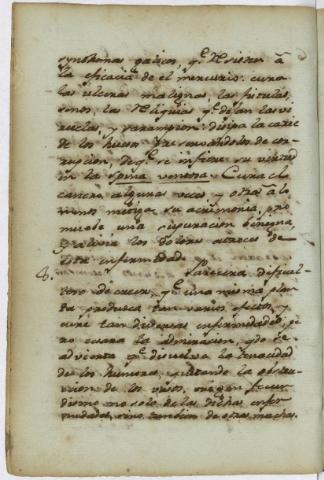 synthomas galicos, qᵉ resisten â
la eficacia de el mercurio: cura
las ulceras malignas, las fistulas,
senos, las reliquias qᵉ dejan las vi
ruelas, y sarampion: disipa la carie
de los huesos preservandolos de cor
rupcion, de qᵉ se infiere su virtud
en la spina ventosa. Cura el
cancro algunas veces, y otras â lo
menos mitiga su acrimonia, pro
mueve una supuracion benigna,
y alivia los dolores atroces de
esta enfermedad.
8. Pareciera dificul
toso de creer, qᵉ una misma plan
ta produzca tan varios efectos, y
cure tan diversas enfermedades; pe
ro cesara la admiracion, qdo se
advierta qᵉ disuelva la tenacidad
de los humores, quitando la obstru
cion de los vasos, origen fecun
dismo no solo de las dichas enfer
medades, sino tambien de otras muchas.